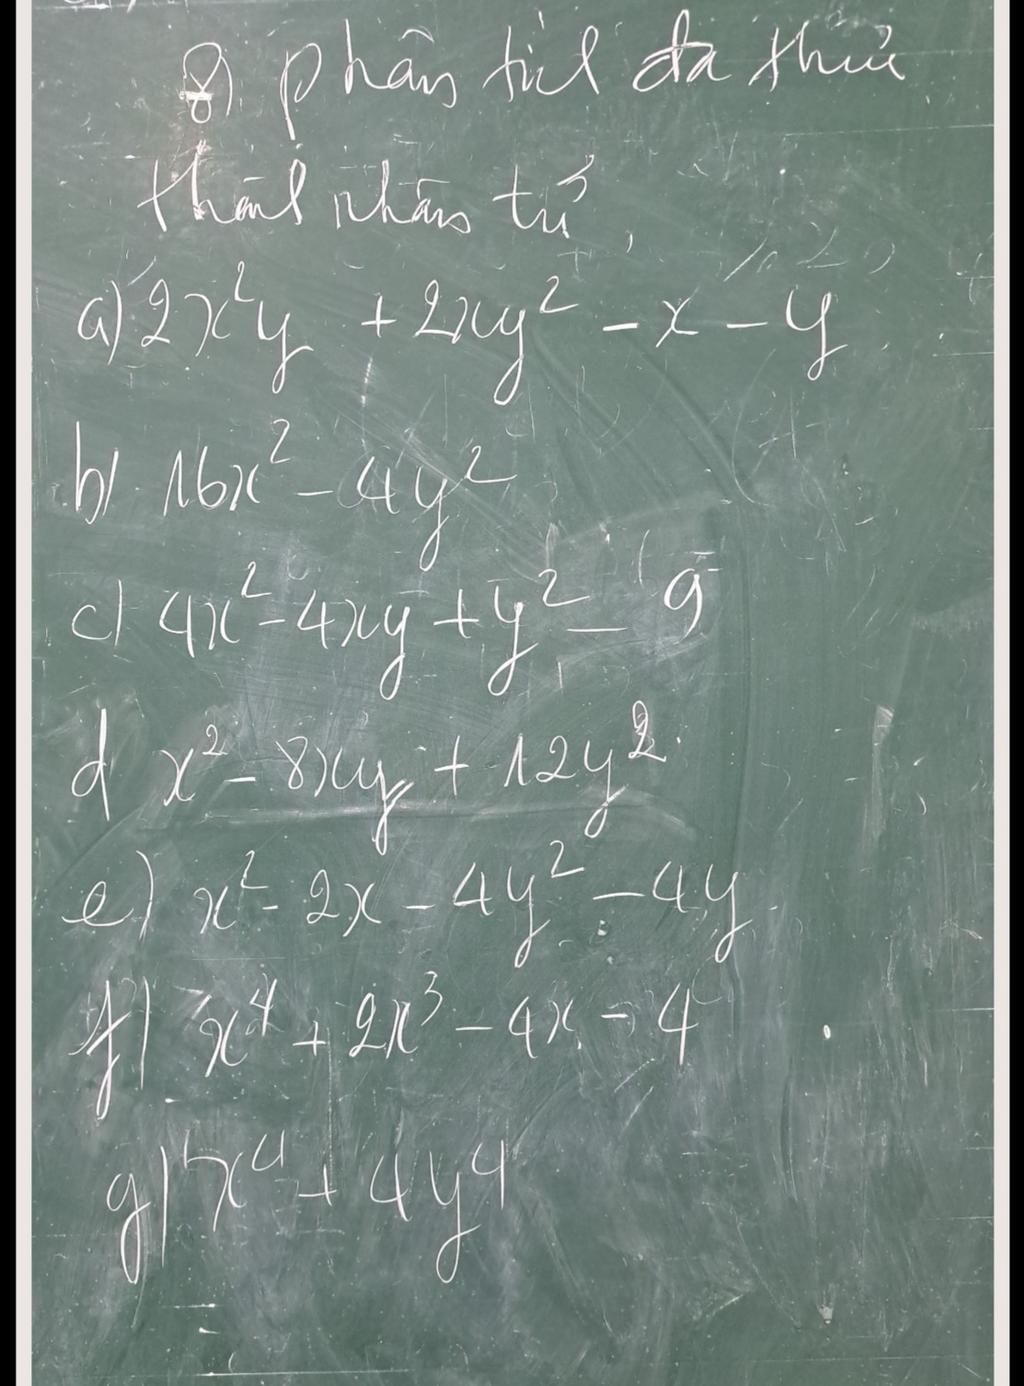 8) phân tích đa thức
thành nhân tử
a) 2x²y + 2xy² - x - y
b) 16x² - 4y²
c) 4x² - 4xy + y² - 9
d x² - 8xy + 12y²
e) x² - 2x - 4y² - 4y
f) x⁴ + 2x³ - 4x - 4
g) x⁴ + 4y⁴